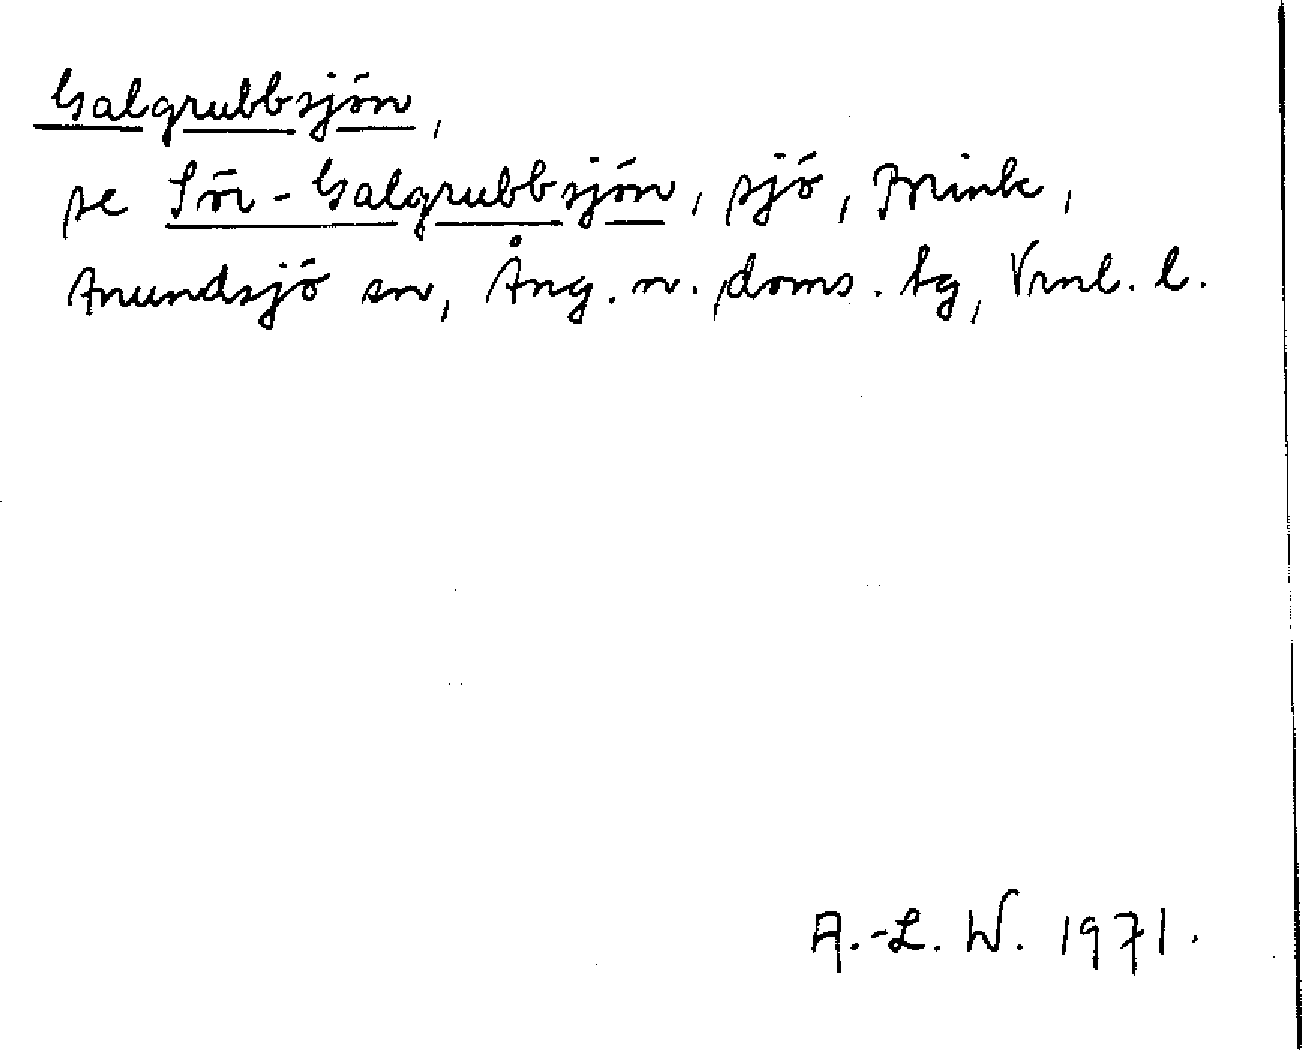 Galgrubbsjön,
se Sör-Galgrubbsjön, sjö,
Anundsjö sn, Ång. n. doms. tg, Vrnl. l.
A.-L. W. 1971.